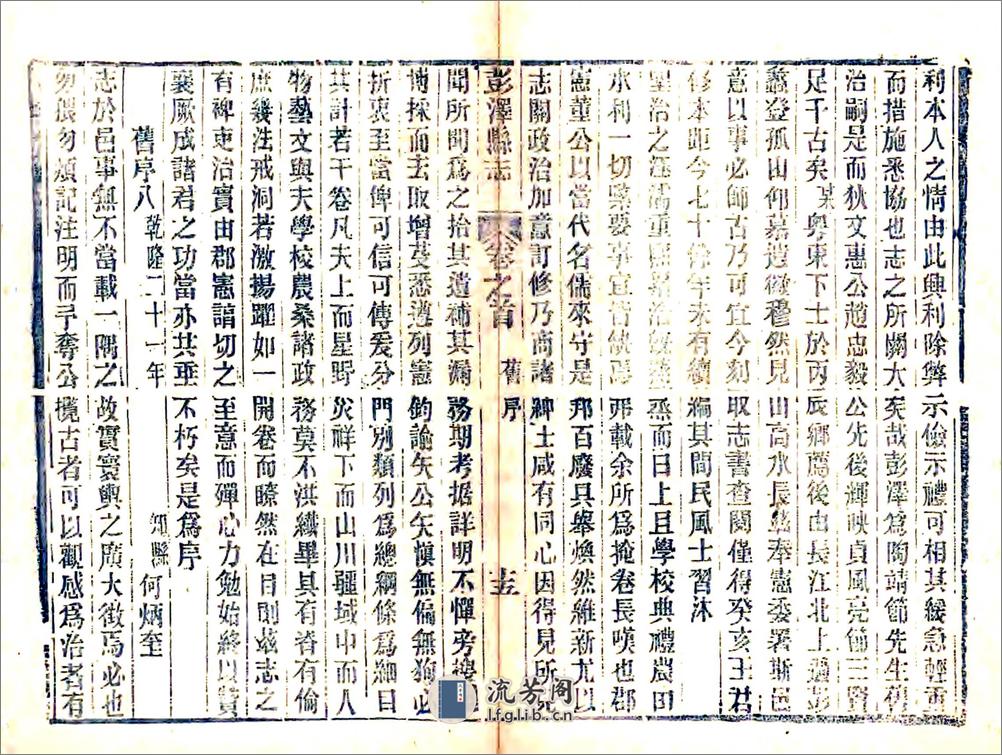 利本人之情由此興利除弊示儉示禮可相其緩急輕重
而措施悉協也志之所關大矣哉彭澤爲陶靖節先生
治嗣是而狄文惠公趙忠毅公先後輝映貞風亮節三賢
足千古矣某粵東下士於丙辰鄉薦後由長江北上過彭
蠡登孤山仰慕遺徽穆然見山高水長兹奉憲委署斯邑
意以事必師古乃可宜今刻取志書查閱僅得癸亥王君
修本距今七十餘年未有續編其間民風士習沐
聖治之涵濡重熙累洽蒸蒸而日上且學校典禮農田
水利一切緊要事宜
載余所爲掩卷長嘆也郡
憲董公以當代名儒來守是邦百廢具舉煥然維新尤以
志關政治加意訂修乃商諸紳士咸有同心因得見所
彭澤縣志 卷之首 舊序 十五
聞所聞爲之拾其遺補其漏務期考据詳明不憚旁搜
博採而去取增芟悉遵列憲鈞諭矢公矢愼無偏無徇必
折衷至當俾可信可傳爰分門別類列爲總綱條爲細目
共計若干卷凡夫上而星野災祥下而山川疆域中而人
物藝文與夫學校農桑諸政務莫不洪纖畢具有脊有倫
庶幾法戒洞若激揚躍如一開卷而瞭然在目則兹志之
有裨吏治實由郡憲諄切之至意而殫心力勉始終以贊
襄厥成諸君之功當亦共垂不朽矣是爲序
舊序八 乾隆二十一年 知縣 何炳奎
志於邑事無不當載一隅之故實寰輿之廣大徵焉必也
勿猥勿瀆記注明而予奪公攬古者可以觀感爲治者有
流芳阁
lfglib.cn